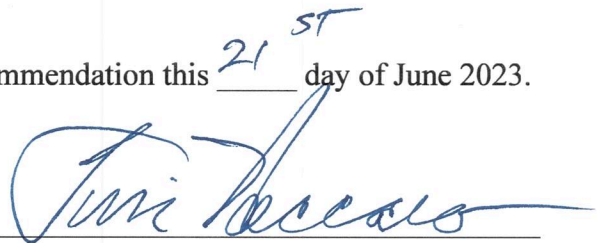 mmendation this 21 ST day of June 2023.